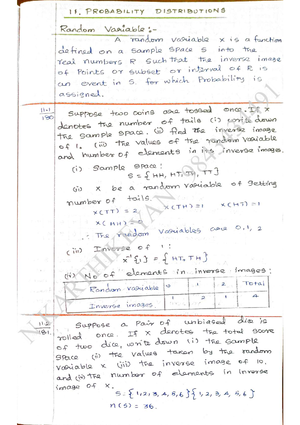 11. PROBABILITY DISTRIBUTIONS
Random Variable:-
A random variable X is a function
defined on a sample space S into the
real numbers R such that the inverse image
of points or subset or interval of R is
an event in S, for which probability is
assigned.
11.1
Suppose two coins are tossed once. If X
denotes the number of tails (i) write down
the sample space (ii) find the inverse image
of 1. (iii) The values of the random variable
and number of elements in its inverse image.
(i) Sample space:
S = {HH, HT, TH, TT}
(ii) X be a random variable of getting
number of tails.
X(TT) = 2 X(TH) = 1 X(HT) = 1
X(HH) = 0
∴ The random variables are 0, 1, 2
(iii) Inverse of 1:
X⁻¹{1} = {HT, TH}
No of elements in inverse images:
Random variable 0 1 2 Total
Inverse images 1 2 1 4
11.2
Suppose a pair of unbiased dice is
rolled once. If X denotes the total score
of two dice, write down (i) the sample
space (ii) the values taken by the random
variable X (iii) the inverse image of 10,
and (iv) the number of elements in inverse
image of X.
S = {1, 2, 3, 4, 5, 6} {1, 2, 3, 4, 5, 6}
n(S) = 36.